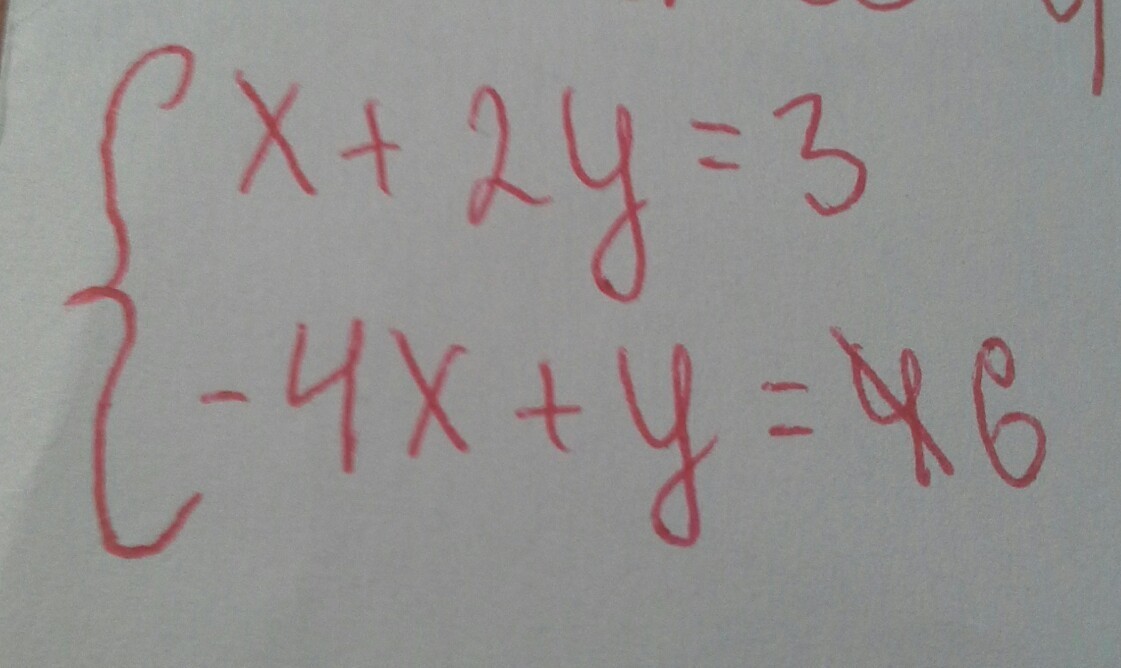 x + 2y = 3
-4x + y = 6